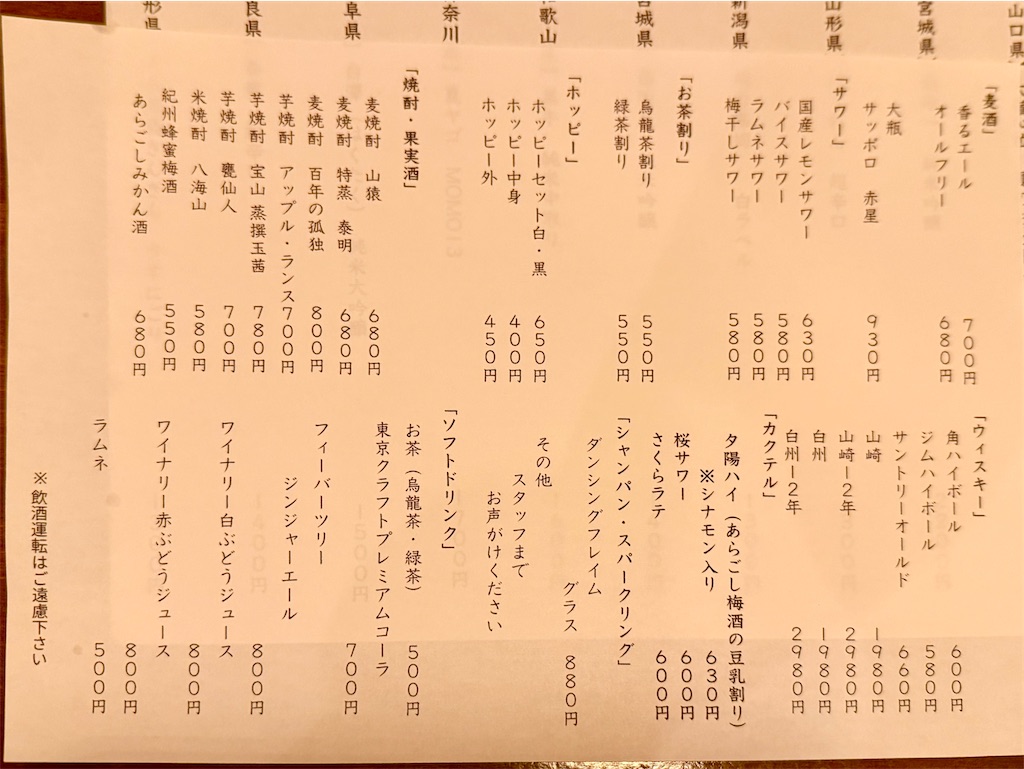 山口県
宮城県
山形県
新潟県
宮城県
和歌山
奈川
阜県
良県
形県
「麦酒」
香るエール 700円
オールフリー 680円
大瓶
サッポロ 赤星 930円
「サワー」
国産レモンサワー 630円
バイスサワー 580円
ラムネサワー 580円
梅干しサワー 580円
「お茶割り」
烏龍茶割り 550円
緑茶割り 550円
「ホッピー」
ホッピーセット白・黒 650円
ホッピー中身 400円
ホッピー外 450円
「焼酎・果実酒」
麦焼酎 山猿 680円
麦焼酎 特蒸 泰明 680円
麦焼酎 百年の孤独 800円
芋焼酎 アップル・ランス 700円
芋焼酎 宝山 蒸撰玉茜 780円
芋焼酎 甕仙人 700円
米焼酎 八海山 580円
紀州蜂蜜梅酒 550円
あらごしみかん酒 680円
「ウィスキー」
角ハイボール 600円
ジムハイボール 580円
サントリーオールド 660円
山崎 1980円
山崎12年 2980円
白州 1980円
白州12年 2980円
「カクテル」
夕陽ハイ(あらごし梅酒の豆乳割り)
※シナモン入り 630円
桜サワー 600円
さくらラテ 600円
「シャンパン・スパークリング」
ダンシングフレイム
グラス 880円
その他
スタッフまで
お声がけください
「ソフトドリンク」
お茶(烏龍茶・緑茶) 500円
東京クラフトプレミアムコーラ
700円
フィーバーツリー
ジンジャーエール
800円
ワイナリー白ぶどうジュース
800円
ワイナリー赤ぶどうジュース
800円
ラムネ 500円
※飲酒運転はご遠慮下さい